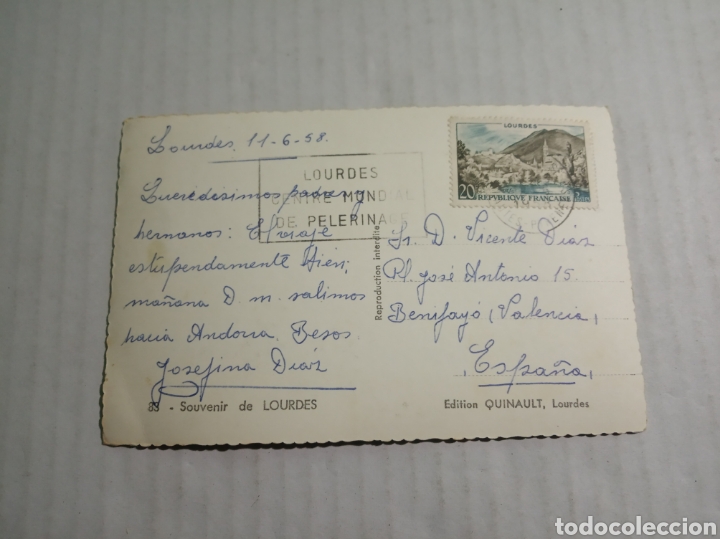 Lourdes, 11-6-58.
LOURDES
CENTRE MONDIAL
DE PELERINAGE
LOURDES
20F REPVBLIQVE FRANÇAISE
Queridísimos padres y
hermanos: El viaje
estupendamente bien;
mañana D. m. salimos
hacia Andorra. Besos
Josefina Díaz
Reproduction interdite
Sr. D. Vicente Díaz
Pl. José Antonio 15.
Benifayó (Valencia)
(España)
83 - Souvenir de LOURDES
Edition QUINAULT, Lourdes
todocoleccion